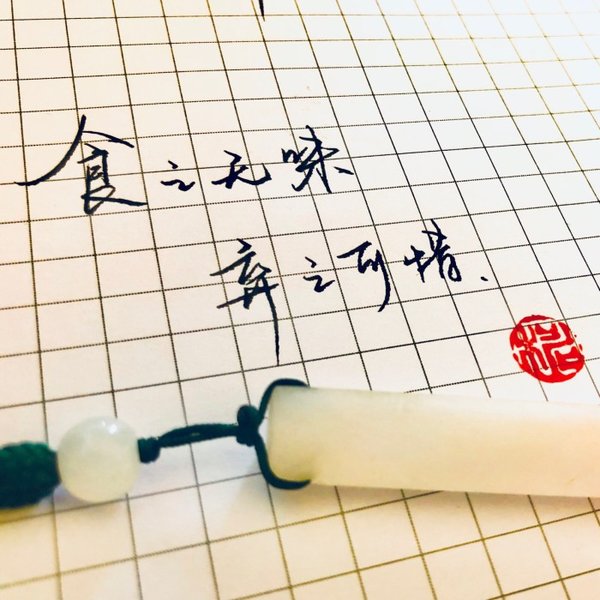 食之无味
弃之可惜、